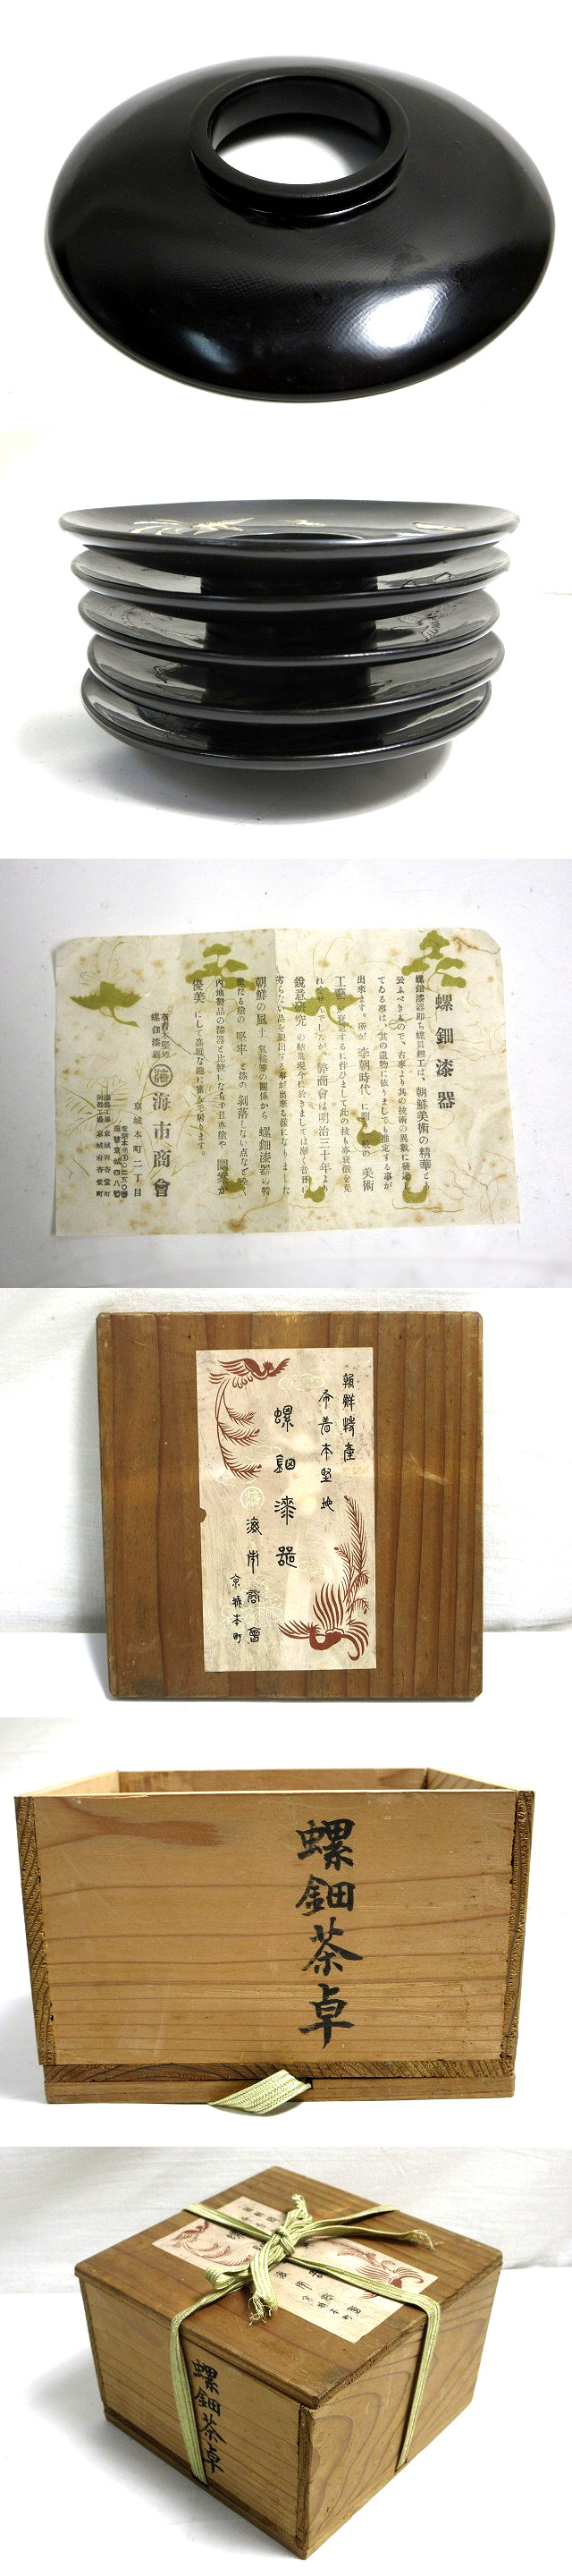 螺鈿漆器
螺鈿漆器即ち螺貝細工は、朝鮮美術の精華とも
云ふべきもので、古來より其の技術の異數に發達し
てゐる事は、其の遺物に依りましても推定する事が
出來ます。所が李朝時代に到り一般の美術
工藝が衰退するに伴ひまして此の技も亦衰微を免
れませんでしたが、弊商會は明治三十年より
銳意研究の結果現今に於きましては
劣らない品を製出する事が出來る樣になりました
朝鮮の風土氣候等の關係から螺鈿漆器の特
堅牢と漆の剝落しない點など
內地製品の漆器と比較になら
優美にして高雅な趣に富んで居ります。
螺鈿漆器
海市商會
京城本町二丁目
朝鮮特產
布着本堅地
螺鈿漆器
海
海市商會
京城本町
螺鈿茶卓
螺鈿茶卓